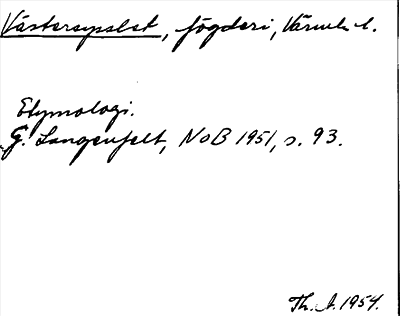 Västersysslet, fögderi, Värml. l.
Etymologi.
G. Langenfelt, NoB 1951, s. 93.
Th. A. 1954.